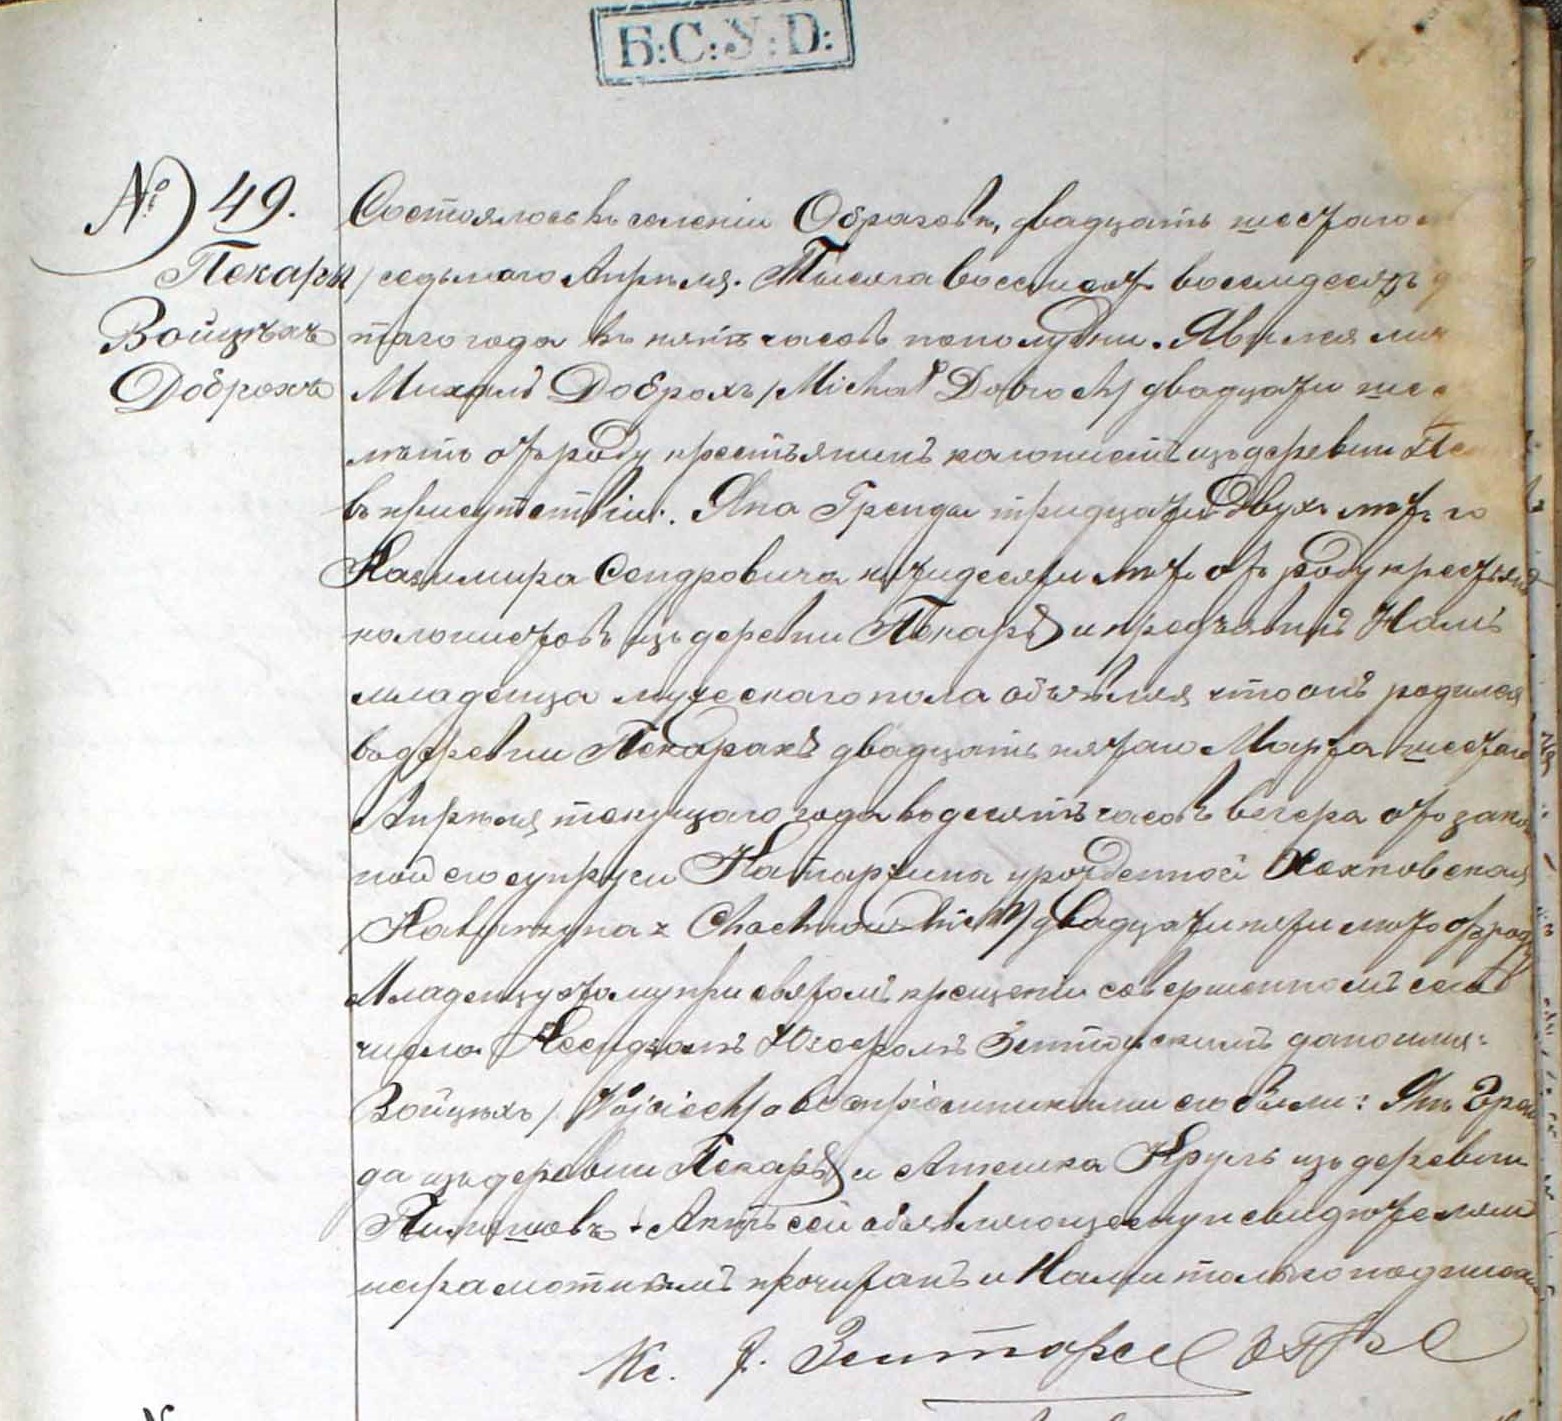 Б:С:У:D:
№ 49.
Пекары
Войцѣхъ
Доброхъ
Состоялось въ селеніи двадцать шестаго
седьмаго Апрѣля. Тысяча восемсотъ восемдесятъ
таго года въ пять часовъ пополудни. Явился
Михалъ Доброхъ /Michał Dobroch/ двадцати
лѣтъ отъ роду крестьянинъ колонистъ изъ деревни
въ присутствіи: Яна Гренды тридцати двухъ лѣтъ
Казимира Сендровича пятидесяти лѣтъ отъ роду
колонистовъ изъ деревни Пекаръ и предъявилъ Намъ
младенца мужескаго пола объявляя что онъ родился
въ деревни Пекарахъ двадцать пятаго Марта шестаго
Апрѣля текущаго года въ десять часовъ вечера отъ
ной его супруги Катаржина урожденной Хехновская
/Katarzyna z двадцати пяти лѣтъ отъ роду
Младенцу этому при святомъ крещеніи совершенномъ сего
числа Ксендзомъ Юзефомъ дано имя:
Войцѣхъ /Wojciech/ а воспріемниками его были: Янъ Грен
да изъ деревни Пекаръ и Агнешка Круль изъ деревни
Актъ сей объявляющему и свидѣтелямъ
неграмотнымъ прочитанъ и Нами только
Кс.